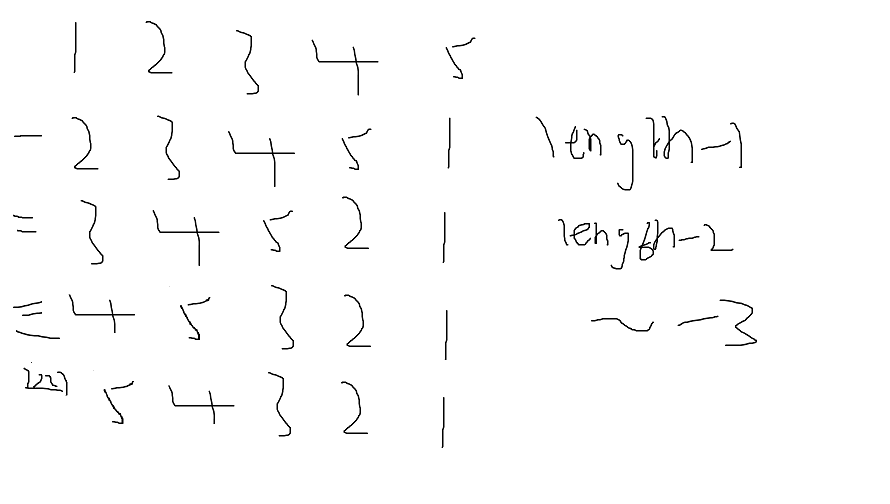 1 2 3 4 5
一 2 3 4 5 1 length-1
二 3 4 5 2 1 length-2
三 4 5 3 2 1 ~ -3
四 5 4 3 2 1